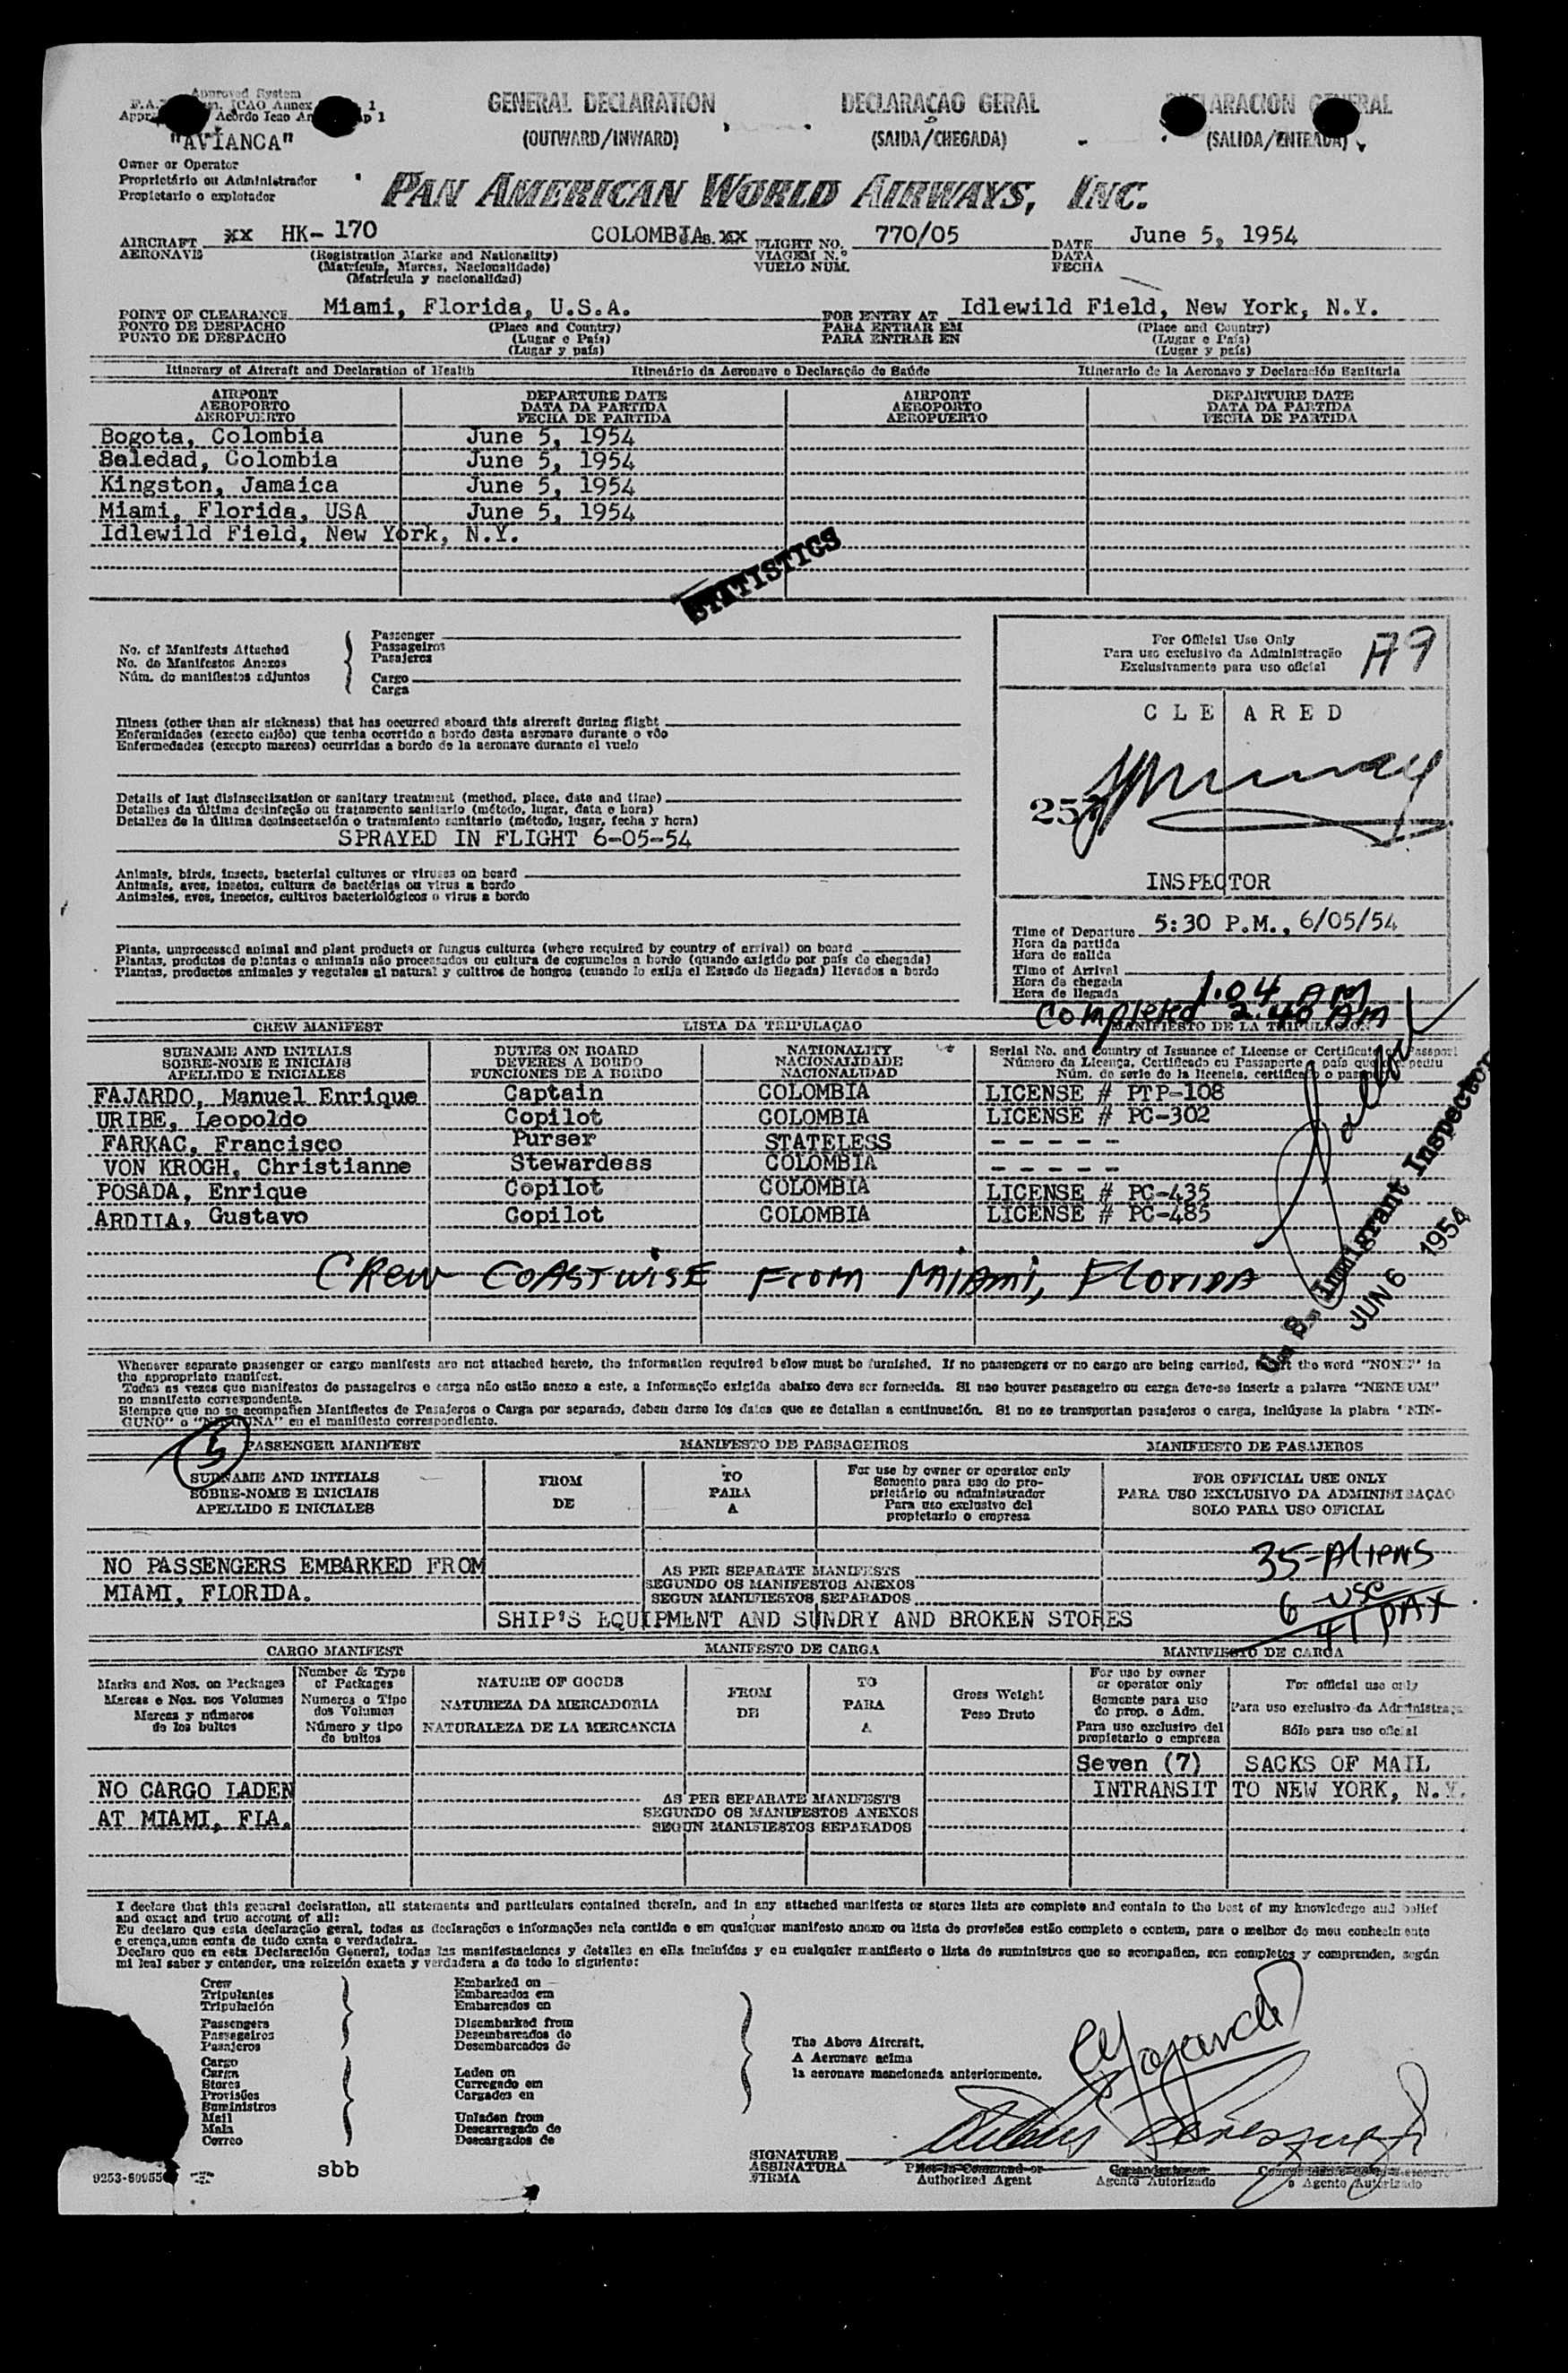 Approved System
"AVIANCA"
Owner or Operator
Proprietário ou Administrador
Propietario o explotador
GENERAL DECLARATION
(OUTWARD/INWARD)
DECLARAÇÃO GERAL
(SAIDA/CHEGADA)
(SALIDA/ENTRADA)
PAN AMERICAN WORLD AIRWAYS, INC.
AIRCRAFT xx HK- 170 COLOMBIA xx FLIGHT NO. 770/05 DATE June 5, 1954
AERONAVE (Registration Marks and Nationality) VIAGEM N.º DATA
(Matrícula, Marcas, Nacionalidade) VUELO NUM. FECHA
(Matrícula y nacionalidad)
POINT OF CLEARANCE Miami, Florida, U.S.A. FOR ENTRY AT Idlewild Field, New York, N.Y.
PONTO DE DESPACHO (Place and Country) PARA ENTRAR EM (Place and Country)
PUNTO DE DESPACHO (Lugar e País) PARA ENTRAR EN (Lugar e País)
(Lugar y país) (Lugar y país)
Itinerary of Aircraft and Declaration of Health Itinerário da Aeronave e Declaração de Saúde Itinerario de la Aeronave y Declaración Sanitaria
AIRPORT DEPARTURE DATE AIRPORT DEPARTURE DATE
AEROPORTO DATA DA PARTIDA AEROPORTO DATA DA PARTIDA
AEROPUERTO FECHA DE PARTIDA AEROPUERTO FECHA DE PARTIDA
Bogota, Colombia June 5, 1954
Soledad, Colombia June 5, 1954
Kingston, Jamaica June 5, 1954
Miami, Florida, USA June 5, 1954
Idlewild Field, New York, N.Y.
STATISTICS
No. of Manifests Attached
No. de Manifestos Anexos
Núm. de manifiestos adjuntos
Passenger
Passageiros
Pasajeros
Cargo
Carga
For Official Use Only
Para uso exclusivo da Administração
Exclusivamente para uso oficial
A9
CLEARED
257
INSPECTOR
Illness (other than air sickness) that has occurred aboard this aircraft during flight
Enfermidades (exceto enjôo) que tenha ocorrido a bordo desta aeronave durante o vôo
Enfermedades (excepto mareos) ocurridas a bordo de la aeronave durante el vuelo
Details of last disinsectization or sanitary treatment (method, place, date and time)
Detalhes da última desinfeção ou tratamento sanitario (método, lugar, data e hora)
Detalles de la última desinsectación o tratamiento sanitario (método, lugar, fecha y hora)
SPRAYED IN FLIGHT 6-05-54
Animals, birds, insects, bacterial cultures or viruses on board
Animais, aves, insetos, cultura de bactérias ou virus a bordo
Animales, aves, insectos, cultivos bacteriológicos o virus a bordo
Plants, unprocessed animal and plant products or fungus cultures (where required by country of arrival) on board
Plantas, produtos de plantas e animais não processados ou cultura de cogumelos a bordo (quando exigido por país de chegada)
Plantas, productos animales y vegetales al natural y cultivos de hongos (cuando lo exija el Estado de llegada) llevados a bordo
Time of Departure 5:30 P.M., 6/05/54
Hora da partida
Hora de salida
Time of Arrival
Hora da chegada
Hora de llegada 1:04 AM
Completed 2:40 AM
CREW MANIFEST LISTA DA TRIPULAÇAO MANIFIESTO DE LA TRIPULACION
SURNAME AND INITIALS DUTIES ON BOARD NATIONALITY Serial No. and Country of Issuance of License or Certificate or Passport
SOBRE-NOME E INICIAIS DEVERES A BORDO NACIONALIDADE
APELLIDO E INICIALES FUNCIONES DE A BORDO NACIONALIDAD
FAJARDO, Manuel Enrique Captain COLOMBIA LICENSE # PTP-108
URIBE, Leopoldo Copilot COLOMBIA LICENSE # PC-302
FARKAC, Francisco Purser STATELESS - - - - -
VON KROGH, Christianne Stewardess COLOMBIA - - - - -
POSADA, Enrique Copilot COLOMBIA LICENSE # PC-435
ARDILA, Gustavo Copilot COLOMBIA LICENSE # PC-485
CREW COASTWISE FROM MIAMI, FLORIDA
U. S. Immigrant Inspector
JUN 6 1954
Whenever separate passenger or cargo manifests are not attached hereto, the information required below must be furnished. If no passengers or no cargo are being carried, the word "NONE" in
the appropriate manifest.
Todas as vezes que manifestos de passageiros e carga não estão anexo a este, a informação exigida abaixo deve ser fornecida. Si nao houver passageiro ou carga deve-se inserir a palavra "NENHUM"
no manifesto correspondente.
Siempre que no se acompañen Manifiestos de Pasajeros o Carga por separado, deben darse los datos que se detallan a continuación. Si no se transportan pasajeros o carga, inclúyase la plabra "NIN-
GUNO" o "NINGUNA" en el manifiesto correspondiente.
5
PASSENGER MANIFEST MANIFESTO DE PASSAGEIROS MANIFIESTO DE PASAJEROS
SURNAME AND INITIALS FROM TO For use by owner or operator only FOR OFFICIAL USE ONLY
SOBRE-NOME E INICIAIS DE PARA Somente para uso do proprietário ou administrador PARA USO EXCLUSIVO DA ADMINISTRAÇAO
APELLIDO E INICIALES A Para uso exclusivo del propietario o empresa SOLO PARA USO OFICIAL
NO PASSENGERS EMBARKED FROM
MIAMI, FLORIDA.
AS PER SEPARATE MANIFESTS
SEGUNDO OS MANIFESTOS ANEXOS
SEGUN MANIFIESTOS SEPARADOS
35-Aliens
6 USC
41 PAX
SHIP'S EQUIPMENT AND SUNDRY AND BROKEN STORES
CARGO MANIFEST MANIFESTO DE CARGA MANIFIESTO DE CARGA
Marks and Nos. on Packages
Marcas e Nos. nos Volumes
Marcas y números
de los bultos
Number & Type
of Packages
Numeros e Tipo
dos Volumes
Número y tipo
de bultos
NATURE OF GOODS
NATUREZA DA MERCADORIA
NATURALEZA DE LA MERCANCIA
FROM
DE
TO
PARA
A
Gross Weight
Peso Bruto
For use by owner
or operator only
Somente para uso
do prop. e Adm.
Para uso exclusivo del
propietario o empresa
For official use only
Para uso exclusivo da
Sólo para uso oficial
Seven (7) SACKS OF MAIL
INTRANSIT TO NEW YORK, N.Y.
NO CARGO LADEN
AT MIAMI, FLA.
AS PER SEPARATE MANIFESTS
SEGUNDO OS MANIFESTOS ANEXOS
SEGUN MANIFIESTOS SEPARADOS
I declare that this general declaration, all statements and particulars contained therein, and in any attached manifests or stores lists are complete and contain to the best of my knowledge and belief
and exact and true account of all:
Eu declaro que esta declaração geral, todas as declarações e informações nela contida e em qualquer manifesto anexo ou lista de provisões estão completo e contem, para o melhor do meu conhecimento
e crença, uma conta de tudo exata e verdadeira.
Declaro que en esta Declaración General, todas las manifestaciones y detalles en ella incluídos y en cualquier manifiesto o lista de suministros que se acompañen, son completos y comprenden, según
mi leal saber y entender, una relación exacta y verdadera a de todo lo siguiente:
Crew
Tripulantes
Tripulación
Passengers
Passageiros
Pasajeros
Cargo
Carga
Stores
Provisões
Suministros
Mail
Mala
Correo
Embarked on
Embarcados em
Embarcados en
Disembarked from
Desembarcados de
Desembarcados de
Laden on
Carregado em
Cargados en
Unladen from
Descarregado de
Descargados de
The Above Aircraft.
A Aeronave acima
la aeronave mencionada anteriormente.
SIGNATURE
ASSINATURA
FIRMA
Pilot-in-Command or
Authorized Agent
Agente Autorizado
o Agente Autorizado
sbb